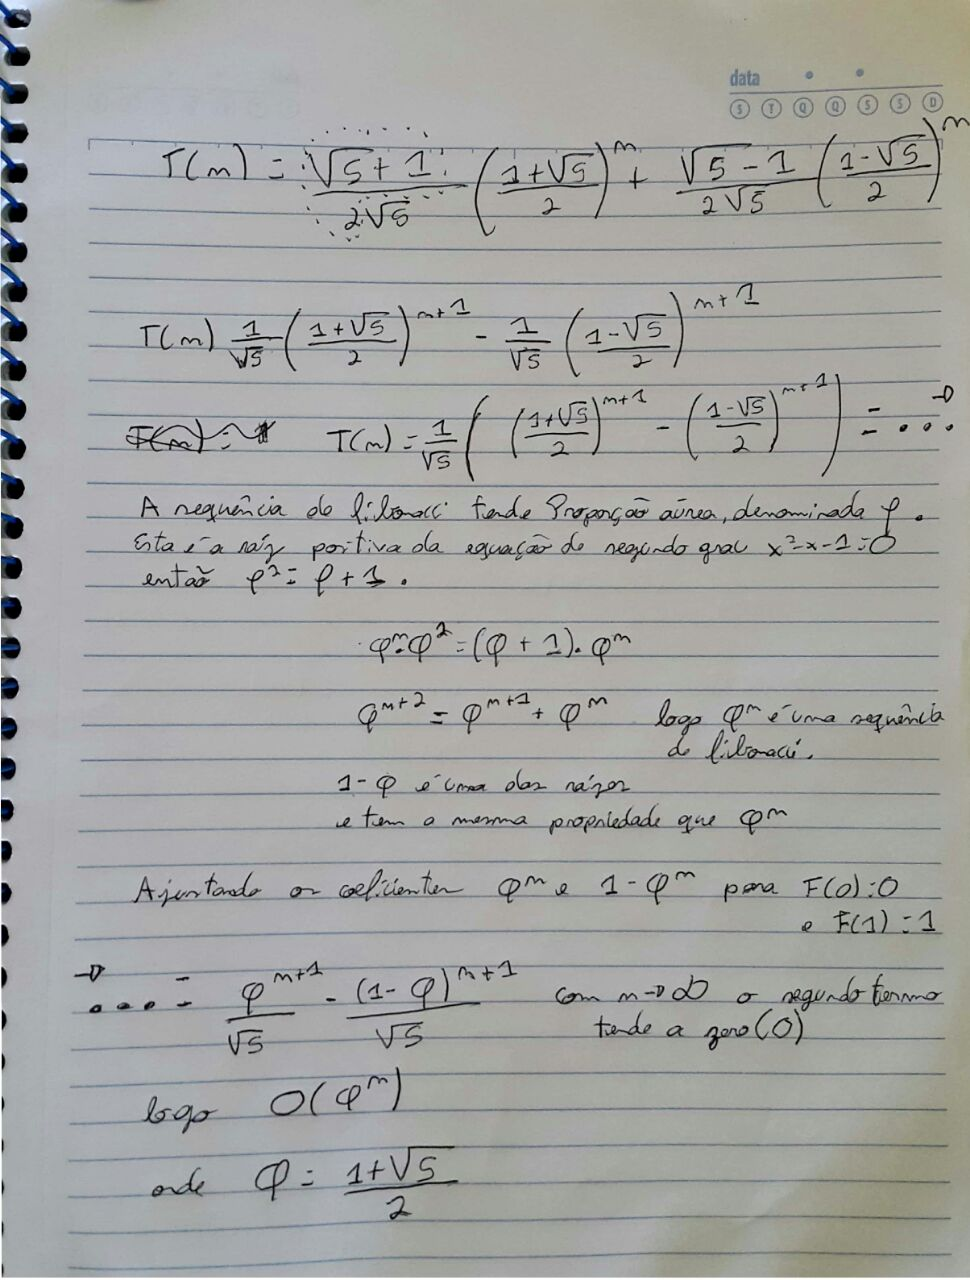 data
S T Q Q S S D
T(n) = √5 + 1 / 2√5 (1+√5 / 2)^n + √5 - 1 / 2√5 (1-√5 / 2)^n
T(n) 1/√5 (1+√5 / 2)^n+1 - 1/√5 (1-√5 / 2)^n+1
T(n) = 1/√5 ((1+√5 / 2)^n+1 - (1-√5 / 2)^n+1) = ...→
A sequência de fibonacci tende Proporção aúrea, denominada φ.
Esta é a raíz positiva da equação do segundo grau x²-x-1=0
então φ² = φ + 1.
φ^n·φ² = (φ + 1)·φ^n
φ^n+2 = φ^n+1 + φ^n logo φ^n é uma sequência
de fibonacci.
1-φ é uma das raízes
e tem a mesma propriedade que φ^n
Ajustando os coeficientes φ^n e 1-φ^n para F(0)=0
e F(1)=1
→... = φ^n+1 / √5 - (1-φ)^n+1 / √5 com n→∞ o segundo termo
tende a zero (0)
logo O(φ^n)
onde φ = 1+√5 / 2